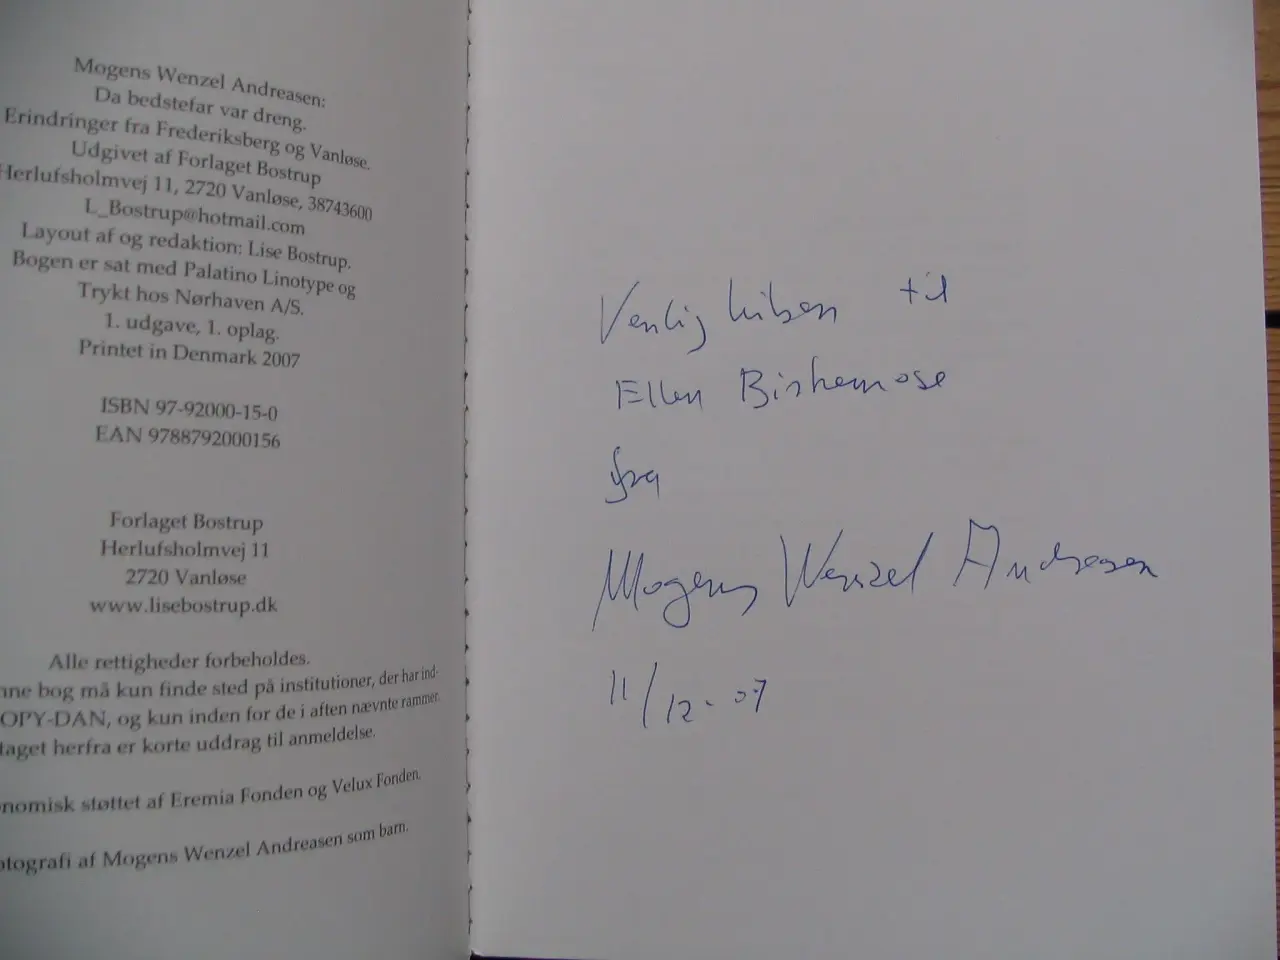 Mogens Wenzel Andreasen:
Da bedstefar var dreng.
Erindringer fra Frederiksberg og Vanløse.
Udgivet af Forlaget Bostrup
Herlufsholmvej 11, 2720 Vanløse, 38743600
L_Bostrup@hotmail.com
Layout af og redaktion: Lise Bostrup.
Bogen er sat med Palatino Linotype og
Trykt hos Nørhaven A/S.
1. udgave, 1. oplag.
Printet in Denmark 2007
ISBN 97-92000-15-0
EAN 9788792000156
Forlaget Bostrup
Herlufsholmvej 11
2720 Vanløse
www.lisebostrup.dk
Alle rettigheder forbeholdes.
nne bog må kun finde sted på institutioner, der har ind-
OPY-DAN, og kun inden for de i aften nævnte rammer.
taget herfra er korte uddrag til anmeldelse.
nomisk støttet af Eremia Fonden og Velux Fonden.
otografi af Mogens Wenzel Andreasen som barn.
Venlig hilsen til
Ellen
fra
Mogens Wenzel Andreasen
11/12-07